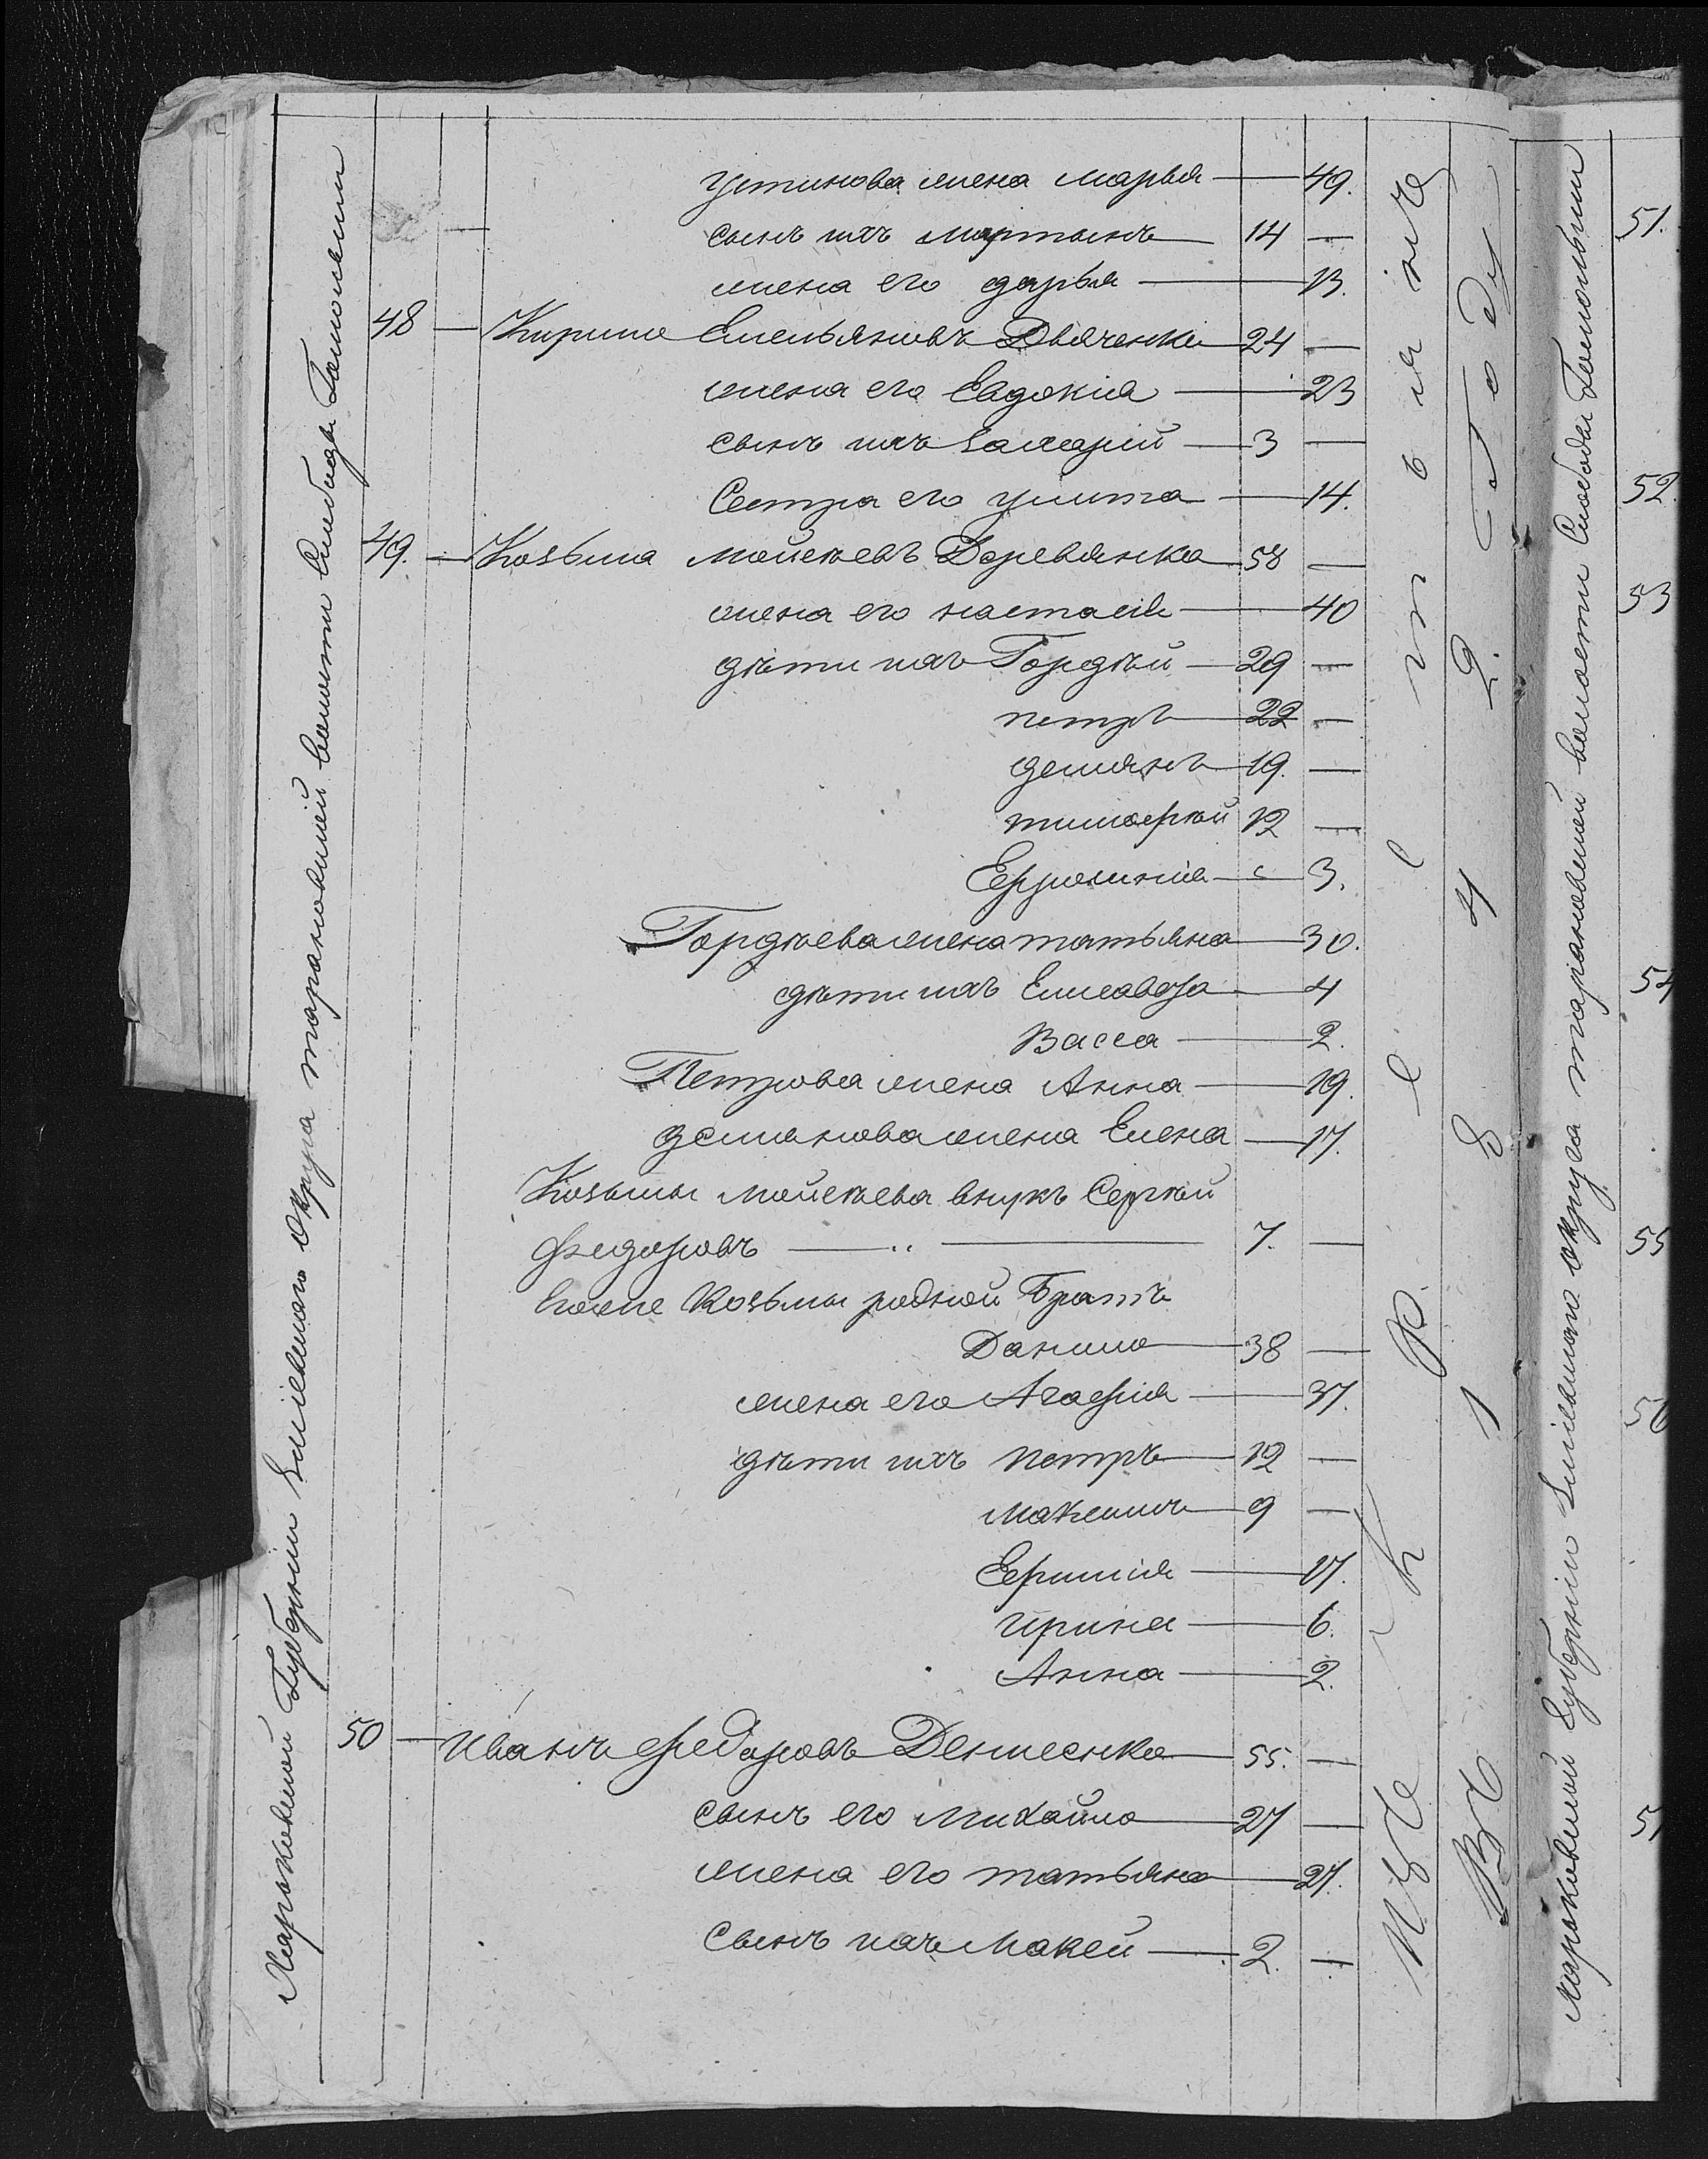 Харьковской Губерніи Зміевского округа тарановской волости Слободы Гомольши
Устинова жена марья — 49.
сынъ ихъ мартынъ 14 —
жена его дарья — 13.
48 — Кирило Емельяновъ Дьяченко 24 —
жена его Евдокия — 23
сынъ ихъ захарий — 3 —
Сестра его улита — 14.
49. — Козьма мойсеевъ Деревянко 58 —
жена его настасія — 40
дѣти ихъ Гордѣй — 29 —
петръ 22 —
демянъ 19. —
тимофѣй 12 —
Ефросинія — 3.
Гордѣева жена татьяна — 30.
дѣти ихъ Елисавета 4
Васса — 2.
Петрова жена Анна — 19.
демянова жена Елена — 17.
Козьмы мойсеева внукъ Сергѣй
федоровъ — „ — 7. —
Козьмы родной Братъ
Данило 38 —
жена его Агафія — 37.
дѣти ихъ петръ 12 —
максимъ 9 —
17.
ирина — 6.
Анна — 2.
50 — Иванъ федоровъ Денисенко 55. —
сынъ его михайло 27 —
жена его татьяна 27.
Сынъ ихъ мокей — 2. —
Въ 1 8 4 2. Году
Харьковской Губерніи Зміевского округа тарановской волости Слободы Гомольши
51.
52.
53
54
55